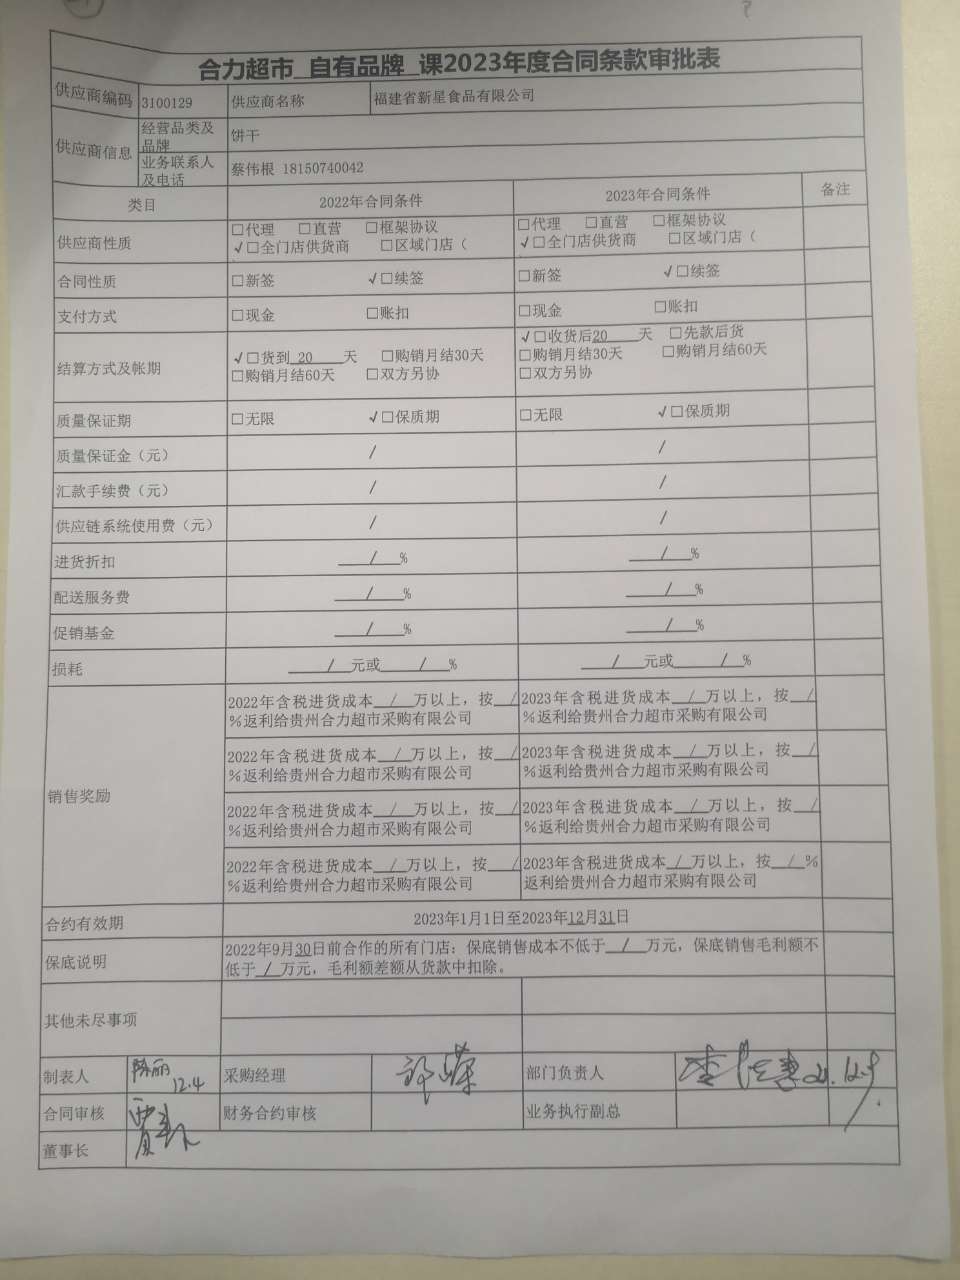 合力超市 自有品牌 课2023年度合同条款审批表
供应商编码 3100129 供应商名称 福建省新星食品有限公司
供应商信息 经营品类及品牌 饼干
业务联系人及电话 蔡伟根 18150740042
类目 2022年合同条件 2023年合同条件 备注
供应商性质 □代理 □直营 □框架协议 □代理 □直营 □框架协议
√□全门店供货商 □区域门店( √□全门店供货商 □区域门店(
合同性质 □新签 √□续签 □新签 √□续签
支付方式 □现金 □账扣 □现金 □账扣
结算方式及帐期 √□货到 20 天 □购销月结30天 √□收货后20 天 □先款后货
□购销月结60天 □双方另协 □购销月结30天 □购销月结60天
□双方另协
质量保证期 □无限 √□保质期 □无限 √□保质期
质量保证金(元) / /
汇款手续费(元) / /
供应链系统使用费(元) / /
进货折扣 / % / %
配送服务费 / % / %
促销基金 / % / %
损耗 / 元或 / % / 元或 / %
销售奖励
2022年含税进货成本 / 万以上,按 / 2023年含税进货成本 / 万以上,按 /
%返利给贵州合力超市采购有限公司 %返利给贵州合力超市采购有限公司
2022年含税进货成本 / 万以上,按 / 2023年含税进货成本 / 万以上,按 /
%返利给贵州合力超市采购有限公司 %返利给贵州合力超市采购有限公司
2022年含税进货成本 / 万以上,按 / 2023年含税进货成本 / 万以上,按 /
%返利给贵州合力超市采购有限公司 %返利给贵州合力超市采购有限公司
2022年含税进货成本 / 万以上,按 / 2023年含税进货成本 / 万以上,按 / %
%返利给贵州合力超市采购有限公司 返利给贵州合力超市采购有限公司
合约有效期 2023年1月1日至2023年12月31日
保底说明 2022年9月30日前合作的所有门店:保底销售成本不低于 / 万元,保底销售毛利额不
低于 / 万元,毛利额差额从货款中扣除。
其他未尽事项
制表人 陈丽 12.4 采购经理 部门负责人
合同审核 财务合约审核 业务执行副总
董事长